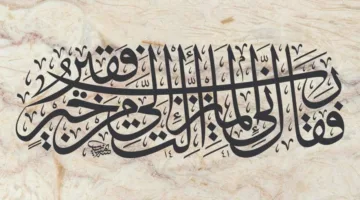 فقال رب إني لما أنزلت إلي من خير فقير